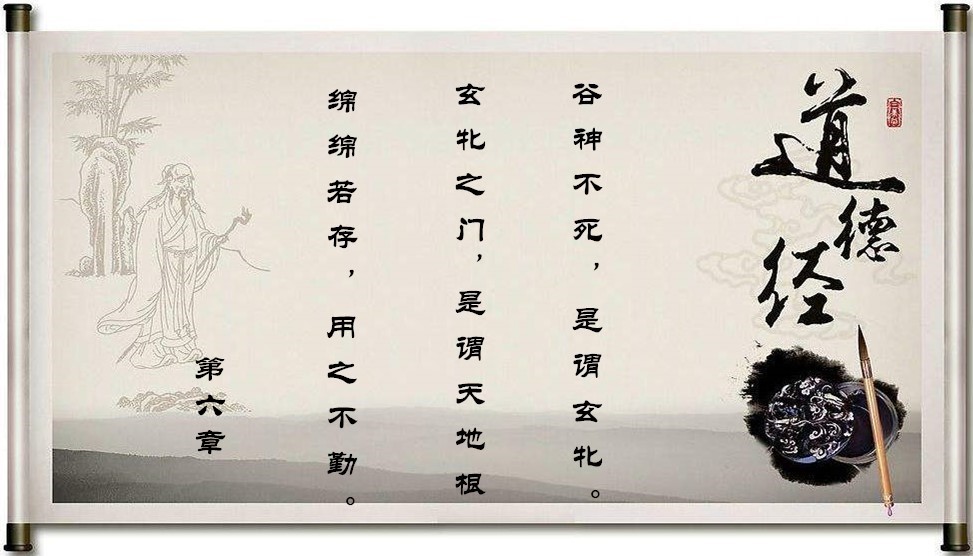 道德经
谷神不死，是谓玄牝。
玄牝之门，是谓天地根
绵绵若存，用之不勤。
第六章